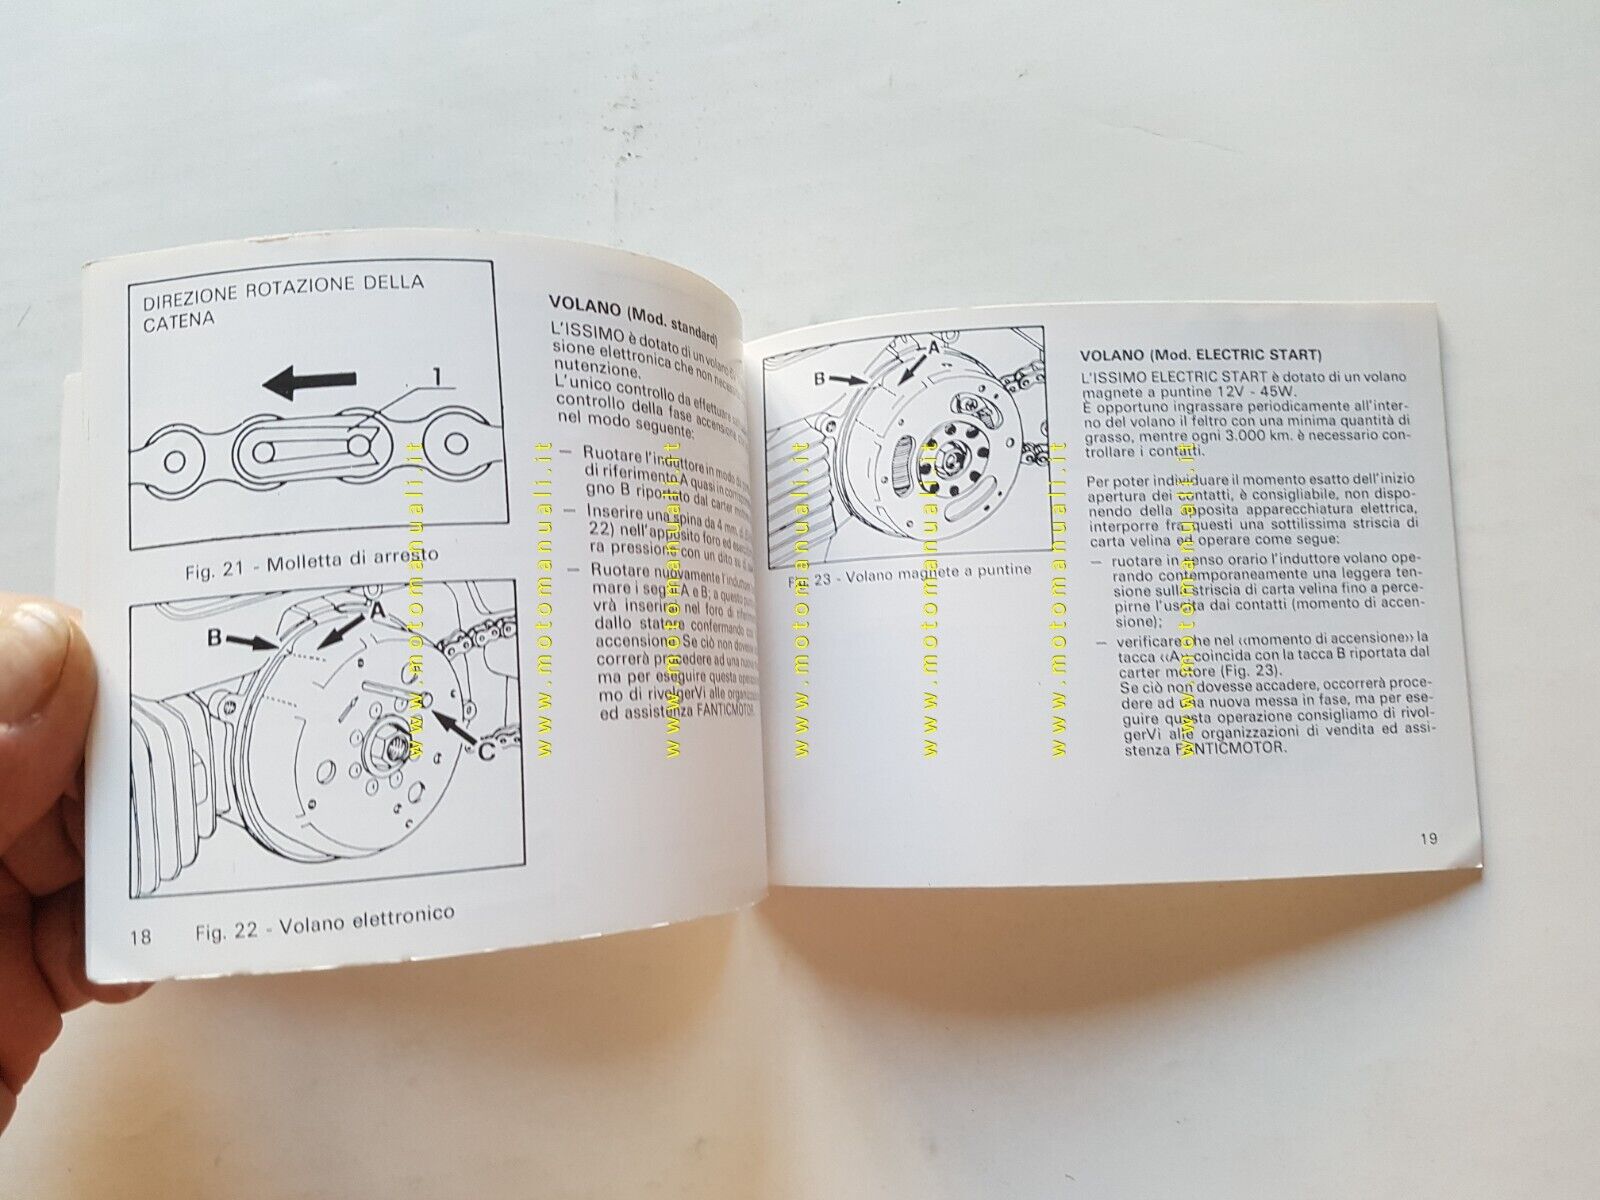 DIREZIONE ROTAZIONE DELLA
CATENA
1
Fig. 21 - Molletta di arresto
B
A
C
18
Fig. 22 - Volano elettronico
VOLANO (Mod. standard)
L'ISSIMO è dotato di un volano
sione elettronica che non
nutenzione.
L'unico controllo da effettuare
controllo della fase accensione
nel modo seguente:
— Ruotare l'induttore in modo
di riferimento A quasi in
gno B riportato dal carter
— Inserire una spina da 4 mm.
22) nell'apposito foro ed
ra pressione con un dito
— Ruotare nuovamente l'induttore
mare i segni A e B; a questo
vrà inserirsi nel foro di
dallo statore confermando
accensione. Se ciò non dovesse
correrà procedere ad una nuova
ma per eseguire questa
mo di rivolgerVi alle
ed assistenza FANTICMOTOR.
B
A
Fig. 23 - Volano magnete a puntine
VOLANO (Mod. ELECTRIC START)
L'ISSIMO ELECTRIC START è dotato di un volano
magnete a puntine 12V - 45W.
È opportuno ingrassare periodicamente all'inter-
no del volano il feltro con una minima quantità di
grasso, mentre ogni 3.000 km. è necessario con-
trollare i contatti.
Per poter individuare il momento esatto dell'inizio
apertura dei contatti, è consigliabile, non dispo-
nendo della apposita apparecchiatura elettrica,
interporre fra questi una sottilissima striscia di
carta velina ed operare come segue:
— ruotare in senso orario l'induttore volano ope-
rando contemporaneamente una leggera ten-
sione sulla striscia di carta velina fino a perce-
pirne l'uscita dai contatti (momento di accen-
sione);
— verificare che nel «momento di accensione» la
tacca «A» coincida con la tacca B riportata dal
carter motore (Fig. 23).
Se ciò non dovesse accadere, occorrerà proce-
dere ad una nuova messa in fase, ma per ese-
guire questa operazione consigliamo di rivol-
gerVi alle organizzazioni di vendita ed assi-
stenza FANTICMOTOR.
19
www.motomanuali.it
www.motomanuali.it
www.motomanuali.it
www.motomanuali.it
www.motomanuali.it
www.motomanuali.it
www.motomanuali.it